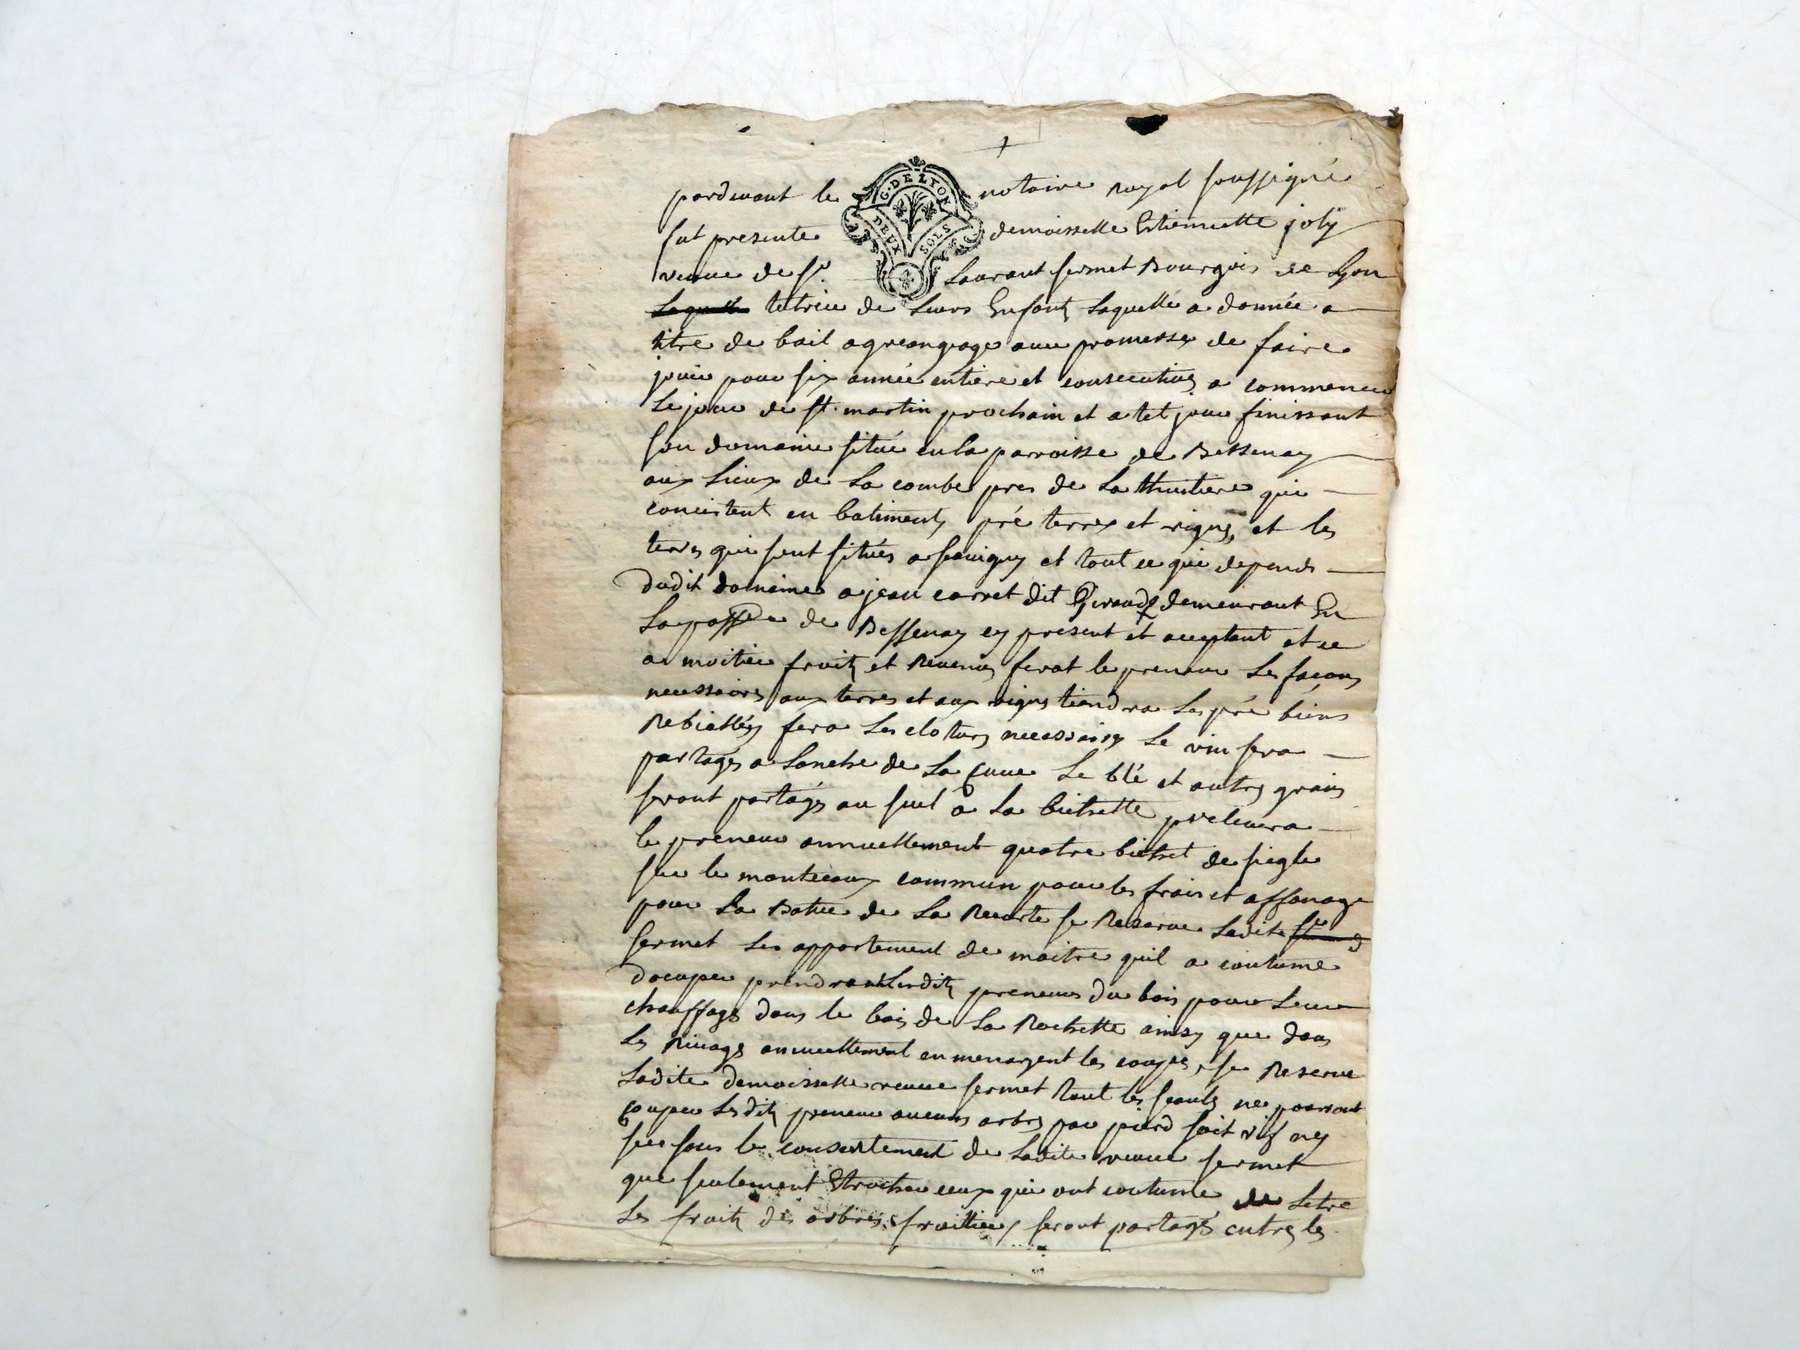 pardevant le notaire royal soussigné
G. DE LYON
DEUX SOLS
fut presente demoisselle Estiennette joly
veuve de Sr. Laurant fermet Bourgois de Lyon
tutrice de leurs Enfants laquelle a donnée a
titre de bail a greangage avec promesse de faire
jouir pour six année entiere et consecutives a commencer
Le jour de st. martin prochain et a tel jour finissant
son domaine situé en la parroisse de Bessenay
aux Lieux de La combe pres de La thuiliere qui
concistent en batiments, pré terres et vignes, et les
terres qui sont sitúés a savigny et tout ce qui depends
dudit domaine a jean carret dit Giraud demeurant En
La de Bessenay cy present et acceptant et ce
a moitié fruits et Revenus ferat le preneur Les façons
necessaires aux terres et aux vignes tiendra Les pré biens
fera Les clotures necessaires Le vin sera
partagés a Lanche de La cuve Le blé et autres grains
seront partagés au suel a La bichette prelevera
le preneur annuellement quatre bichet de siegle
sur le montceaux commun pour les frais et affanage
pour La Batue de La Recorte se Reserve Ladite
fermet Les appartement de maitre quil a coutume
docuper prendront Lesdits preneurs du bois pour Leur
chauffage dans le bois de La Rochette ainsy que dans
Les Rivages annuellement en menargent les coupes, se Reserve
Ladite demoisselle veuve fermet tout les ne pourront
couper Lesdits preneur aucuns arbres par pierd soit vif ny
sec sans le consentement de Ladite veuve fermet
que seulement Etrocher ceux qui ont coutume de Letre
Les fruits des arbres fruitiers seront partagés entres les